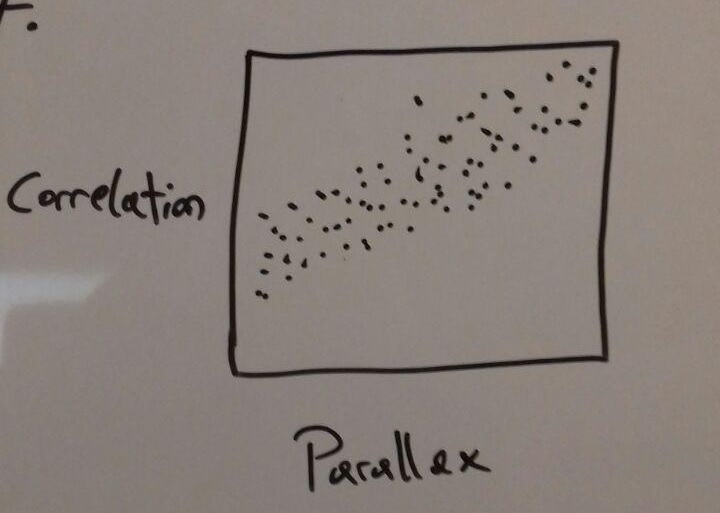 Correlation
Parallax